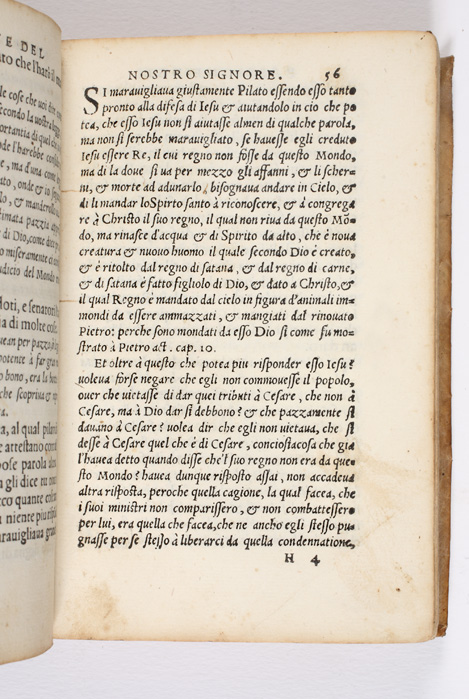 E DEL
to che l'harà il m
le cose che uoi dite
secondo la uostra
portantia di quel
nde l'harebbe con
e, ma d'una come
ato, onde &
lo, & mandarlo
timata pazzia
di Dio, come
o miseramente ci
udicio del Mondo
doti, e senatori
a di molte cose.
uean per pazzia
potente à far gran
o bono, era la bon
che scopriua &
a.
a, al qual pilato
e attestano con
pose parola
gli dice
cco quante cose
niente più risp
arauigliaua gran
NOSTRO SIGNORE. 56
SI marauigliaua giustamente Pilato essendo esso tanto
pronto alla difesa di Iesu & aiutandolo in cio che po
tea, che esso Iesu non si aiutasse almen di qualche parola,
ma non si serebbe marauigliato, se hauesse egli creduto
Iesu essere Re, il cui regno non fosse da questo Mondo,
ma di la doue si ua per mezzo gli affanni, & li scher=
ni, & morte ad adunarlo, bisognaua andare in Cielo, &
di li mandar lo Spirto santo à riconoscere, & à congrega
re à Christo il suo regno, il qual non riua da questo Mō=
do, ma rinasce d'acqua & di Spirito da alto, che è noua
creatura & nuouo huomo il quale secondo Dio è creato,
& è ritolto dal regno di satana, & dal regno di carne,
& di satana è fatto figliolo di Dio, & dato a Christo, &
il qual Regno è mandato dal cielo in figura d'animali im=
mondi da essere ammazzati, & mangiati dal rinouato
Pietro: perche sono mondati da esso Dio si come fu mo=
strato à Pietro act. cap. 10.
Et oltre à questo che potea piu risponder esso Iesu?
uoleua forse negare che egli non commouesse il popolo,
ouer che uietasse di dar quei tributi à Cesare, che non à
Cesare, ma à Dio dar si debbono? & che pazzamente si
dauano à Cesare? uolea dir che egli non uietaua, che si
desse à Cesare quel che è di Cesare, conciosiacosa che gia
l'hauea detto quando disse che'l suo regno non era da que=
sto Mondo? hauea dunque risposto assai, non accadeua
altra risposta, peroche quella cagione, la qual facea, che
i suoi ministri non comparissero, & non combattessero
per lui, era quella che facea, che ne ancho egli stesso pu=
gnasse per se stesso à liberarci da quella condennatione,
H 4